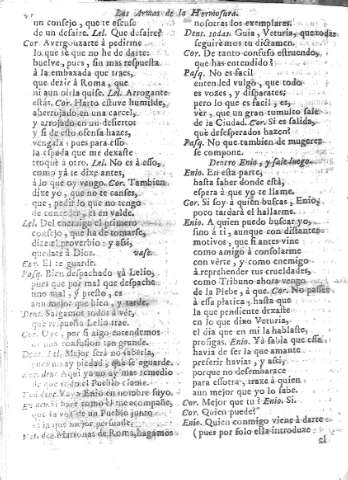 Las Armas de la Hermosura.
un consejo, que te escuso
de un desaire. Lel. Que desaire?
Cor. Avergonzarte à pedirme
lo que sè que no he de darte
buelve, pues, sin mas respuesta
à la embaxada que traes,
que dezir à Roma, que
ni aun oirla quise. Lel. Arrogante
estàs. Cor. Harto estuve humilde,
aherrojado en una carcel,
y arrojado en un desierto
y si de esto osensa hazes,
vengala, pues para esso
la espada que me dexaste
troquè à otro. Lel. No es à esso,
como yà te dixe antes,
à lo que oy vengo. Cor. Tambien
dixe yo, que no te canses,
que, pedir lo que no tengo
de conceder, es en valde.
Lel. Del enemigo el primero
consejo, que ha de tomarse,
dize el proverbio, y assi,
quedate à Dios. vase.
Cor. El te guarde.
Pasq. Bien despachado và Lelio,
pues que por mal que despache
uno mal, y presto, es
aun mejor que bien, y tarde.
Salgamos todos à vèr,
que respuesta Lelio trae.
Uno, por si algo entendemos
en una confusion tan grande.
Mejor serà no saberla,
no ay piedad, que se aguarde.
Aqui ya no ay mas remedio
de que todo el Pueblo clame.
Vaya Enio en nombre suyo.
Enio. Si harè como èl me acompañe,
que la voz de un Pueblo junto
Matronas de Roma, hagamos
nosotras los exemplares.
Dent. todas. Guia, Veturia, que todas
seguirèmos tu dictamen.
Cor. De tanto confuso estruendo,
que has entendido?
Pasq. No es facil
entended vulgo, que todo
es vozes, y disparates;
pero lo que es facil, es,
vèr, que un gran tumulto sale
de la Ciudad. Cor. Si es salida,
què desesperados hazen?
Pasq. No que tambien de mugeres
se compone.
Dentro Enio, y sale luego.
Enio. En esta parte,
hasta saber donde està,
espera à que yo te llame.
Cor. Si soy à quien buscas, Enio,
poco tardarà el hallarme.
Enio. A quien puedo buscar yo,
sino à ti, aunque con distantes
motivos, que si antes vine
como amigo à consolarme
con vèrte, y como enemigo
à reprehender tus crueldades,
como Tribuno ahora vengo
de la Plebe, à que. Cor. No passes
à essa platica, hasta que
la que pendiente dexaste
en lo que dixo Veturia,
el dia que en mi la hablaste,
prosigas. Enio. Yà sabia que essa
havia de ser la que amante
preferir havias, y assi,
porque no desembarace
para essotra, traxe à quien
aun mejor que yo lo sabe.
Cor. Mejor que tu? Enio. Si.
Cor. Quien puede?
Enio. Quien conmigo viene à darte
(pues por sola esta introduxe
el